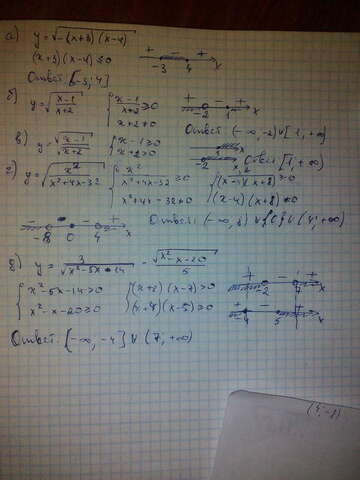 а) y = √-(x+3)(x-4)
(x+3)(x-4) ≤ 0
+ - + -3 4 x
Ответ: [-3; 4]
б) y = √(x-1)/(x+2) { (x-1)/(x+2) ≥ 0 x+2 ≠ 0
+ - + -2 1 x
Ответ (-∞, -2) ∪ [1, +∞)
в) y = √x-1/√x+2 { x-1 ≥ 0 x+2 > 0
Ответ [1, +∞)
г) y = √x²/(x²+4x-32) { x²/(x²+4x-32) ≥ 0 x²+4x-32 ≠ 0
(x-4)(x+8) ≠ 0
-8 0 4 x
Ответ:
д) y = 3/√x²-5x-14 - √x²-x-20/5
{ x²-5x-14 > 0 { (x+2)(x-7) > 0
+ -2 - 7 + x
x²-x-20 ≥ 0 (x+4)(x-5) ≥ 0
+ -4 - 5 + x
Ответ: [-∞, -4] ∪ (7, +∞)